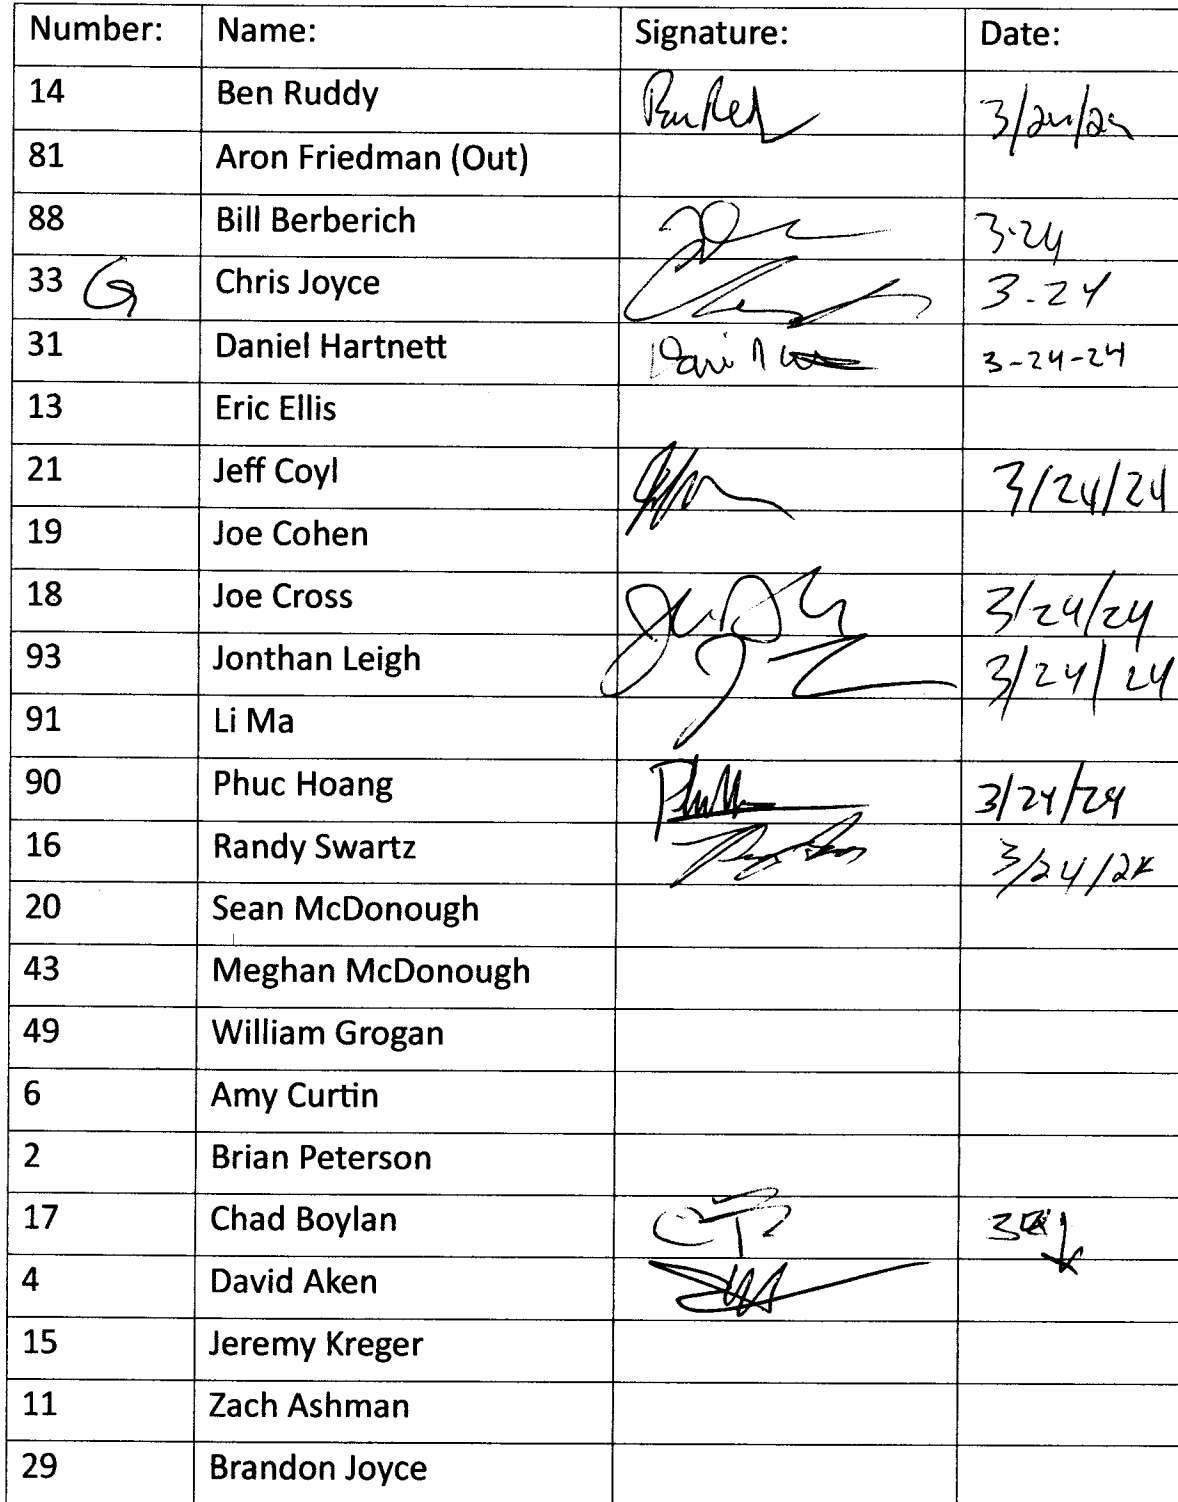 Number: Name: Signature: Date:
14 Ben Ruddy
81 Aron Friedman (Out)
88 Bill Berberich 3-24
33 G Chris Joyce 3-24
31 Daniel Hartnett 3-24-24
13 Eric Ellis
21 Jeff Coyl 3/24/24
19 Joe Cohen
18 Joe Cross 3/24/24
93 Jonthan Leigh 3/24/24
91 Li Ma
90 Phuc Hoang 3/24/24
16 Randy Swartz 3/24/24
20 Sean McDonough
43 Meghan McDonough
49 William Grogan
6 Amy Curtin
2 Brian Peterson
17 Chad Boylan
4 David Aken
15 Jeremy Kreger
11 Zach Ashman
29 Brandon Joyce